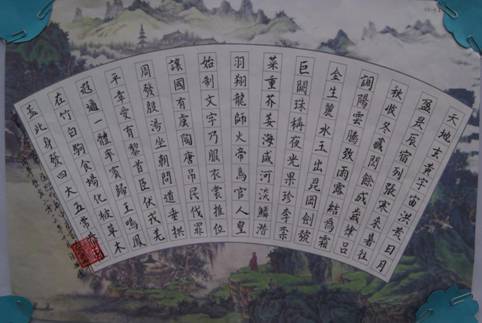 天地玄黃宇宙洪荒日月
盈昃辰宿列張寒來暑往
秋收冬藏閏餘成歲律呂
調陽雲騰致雨露結為霜
金生麗水玉出昆岡劍號
巨闕珠稱夜光果珍李柰
菜重芥姜海咸河淡鱗潛
羽翔龍師火帝鳥官人皇
始制文字乃服衣裳推位
讓國有虞陶唐吊民伐罪
周發殷湯坐朝問道垂拱
平章愛育黎首臣伏戎羌
遐邇一體率賓歸王鳴鳳
在竹白駒食場化被草木
蓋此身發四大五常